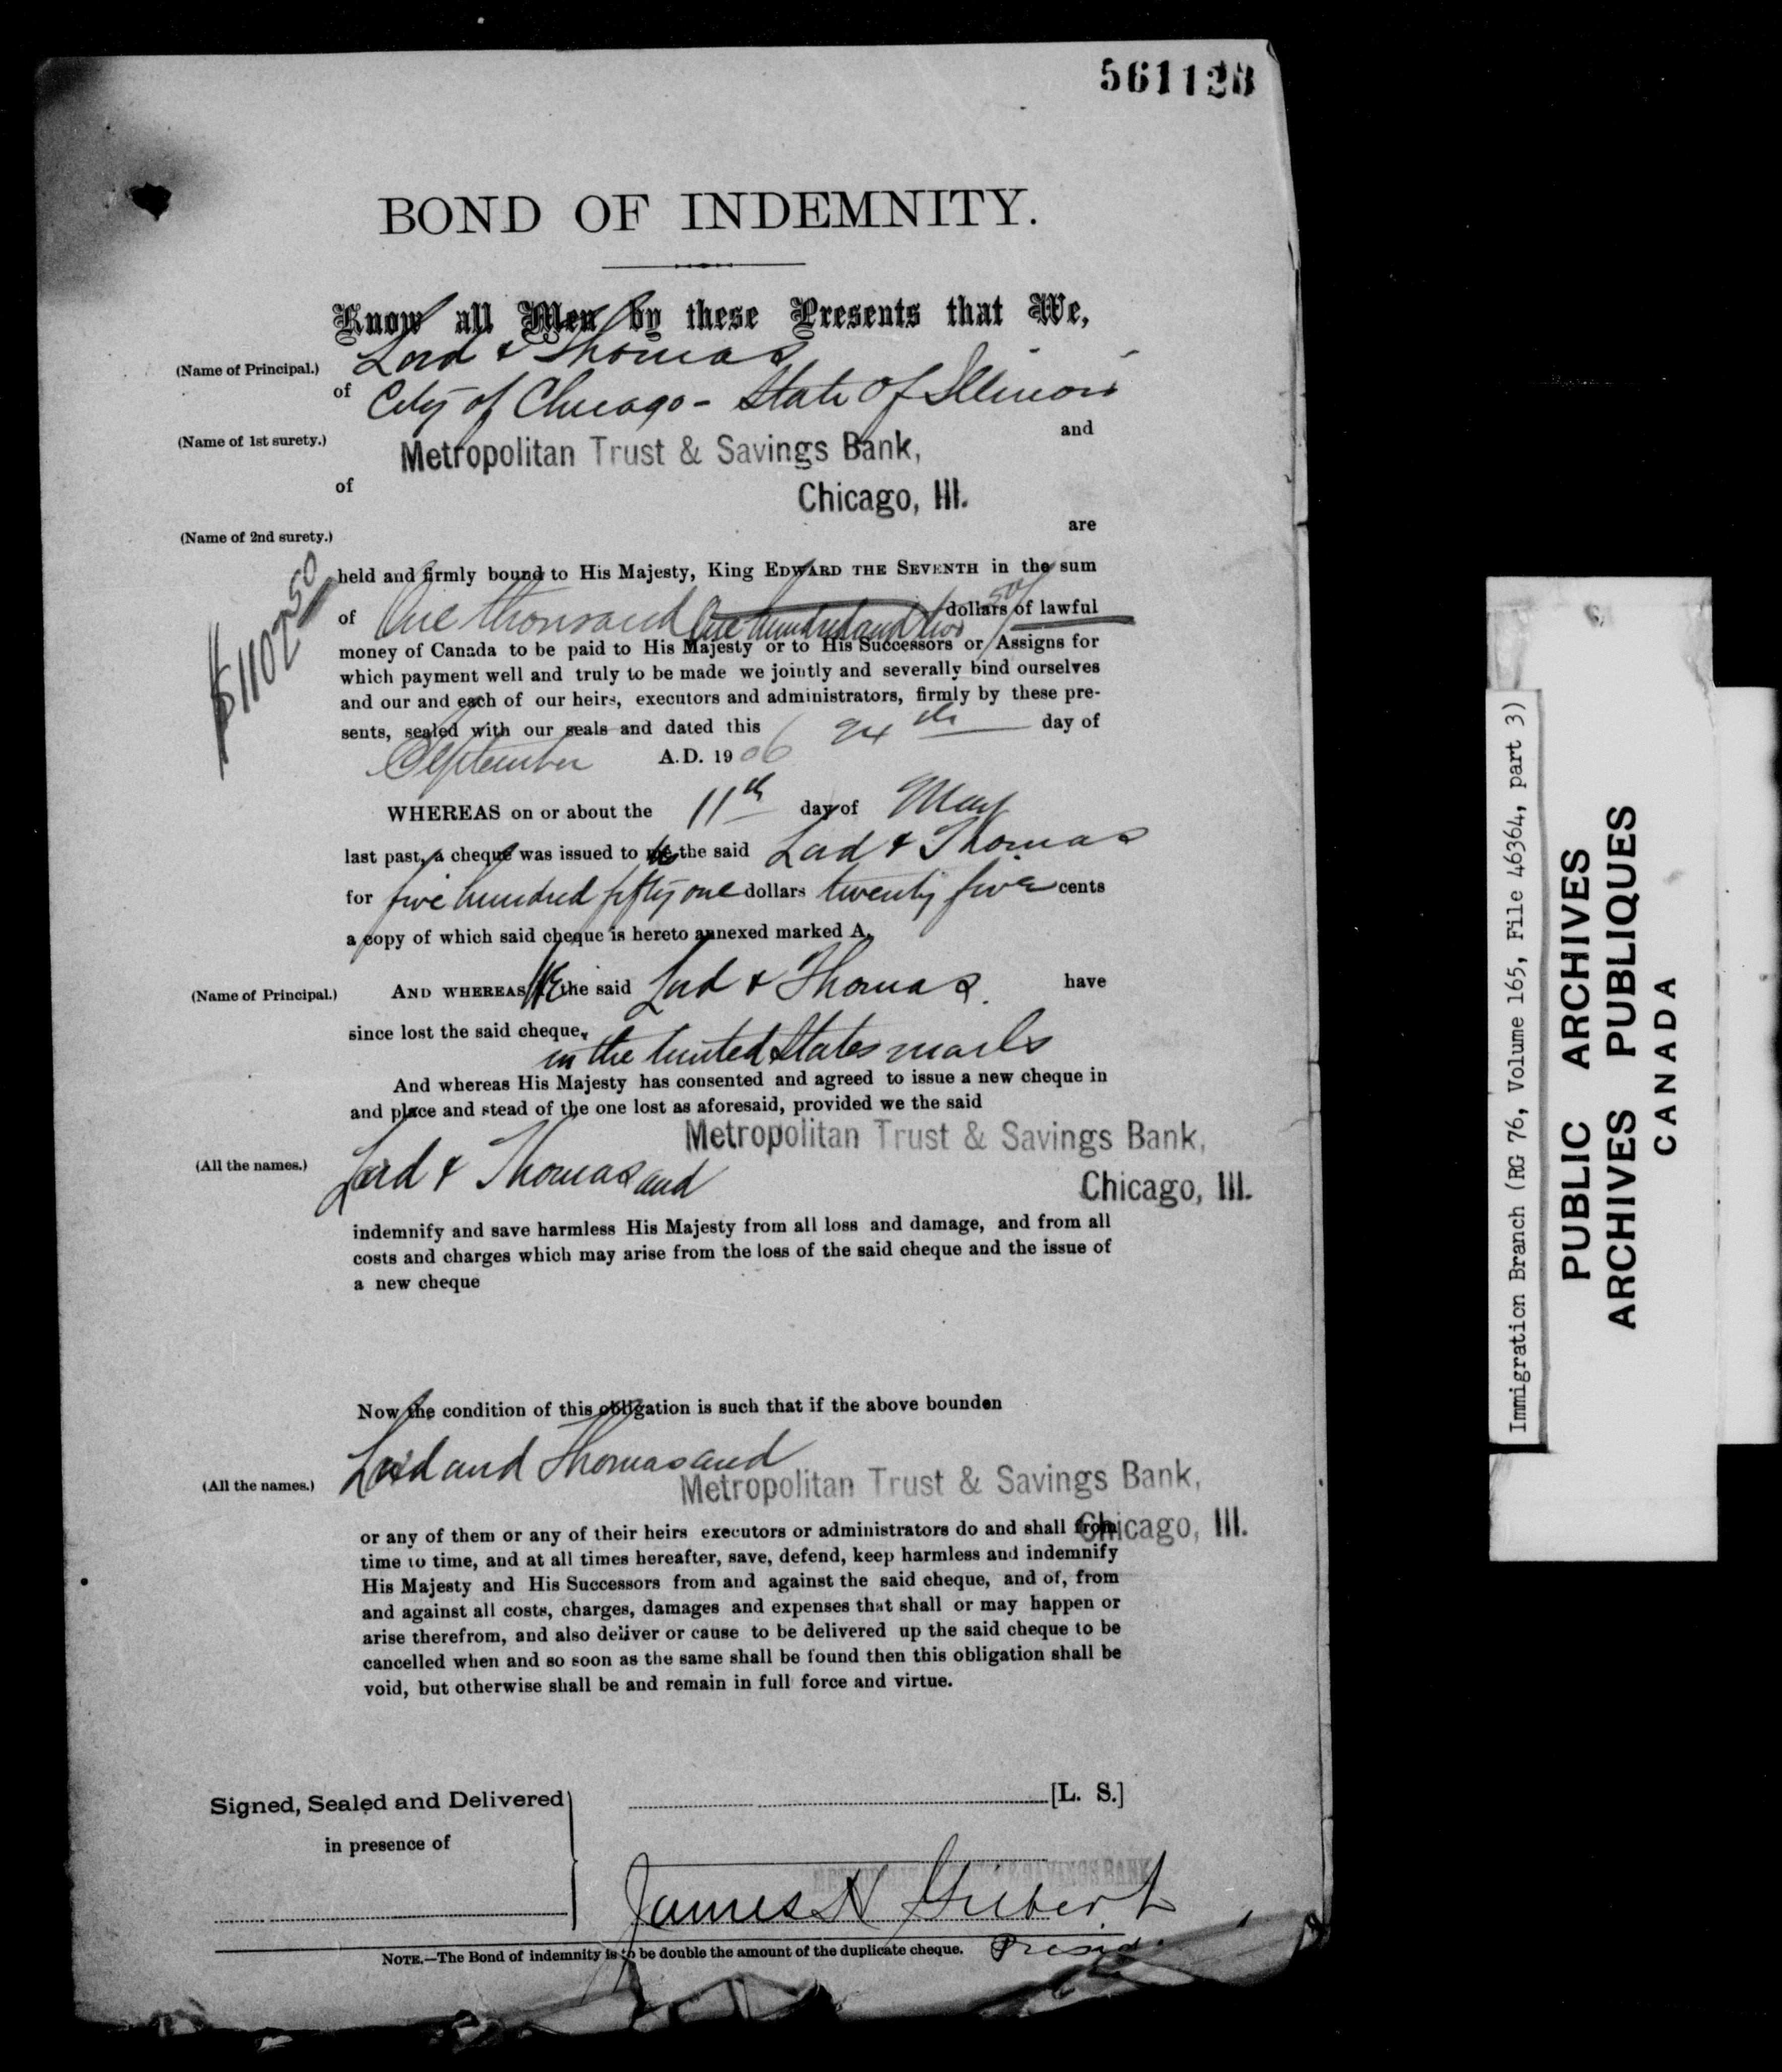 561128
BOND OF INDEMNITY.
Know all Men by these Presents that We,
(Name of Principal.) Lord & Thomas
of City of Chicago - State of Illinois
(Name of 1st surety.) and
Metropolitan Trust & Savings Bank,
of
Chicago, Ill.
(Name of 2nd surety.) are
$1102 50
held and firmly bound to His Majesty, King EDWARD THE SEVENTH in the sum
of One thousand One hundred and two 50/ dollars of lawful
money of Canada to be paid to His Majesty or to His Successors or Assigns for
which payment well and truly to be made we jointly and severally bind ourselves
and our and each of our heirs, executors and administrators, firmly by these pre-
sents, sealed with our seals and dated this 24th day of
September A.D. 1906
WHEREAS on or about the 11th day of May
last past, a cheque was issued to the said Lord & Thomas
for five hundred fifty one dollars twenty five cents
a copy of which said cheque is hereto annexed marked A.
(Name of Principal.) AND WHEREAS WE the said Lord & Thomas. have
since lost the said cheque,
in the United States mails
And whereas His Majesty has consented and agreed to issue a new cheque in
and place and stead of the one lost as aforesaid, provided we the said
Metropolitan Trust & Savings Bank,
(All the names.) Lord & Thomas and Chicago, Ill.
indemnify and save harmless His Majesty from all loss and damage, and from all
costs and charges which may arise from the loss of the said cheque and the issue of
a new cheque
Now the condition of this obligation is such that if the above bounden
(All the names.) Lord and Thomas and
Metropolitan Trust & Savings Bank,
Chicago, Ill.
or any of them or any of their heirs executors or administrators do and shall from
time to time, and at all times hereafter, save, defend, keep harmless and indemnify
His Majesty and His Successors from and against the said cheque, and of, from
and against all costs, charges, damages and expenses that shall or may happen or
arise therefrom, and also deliver or cause to be delivered up the said cheque to be
cancelled when and so soon as the same shall be found then this obligation shall be
void, but otherwise shall be and remain in full force and virtue.
Signed, Sealed and Delivered [L. S.]
in presence of
SAVINGS BANK
James H Gilbert
Presid.
NOTE.—The Bond of indemnity is to be double the amount of the duplicate cheque.
Immigration Branch (RG 76, Volume 165, File 46364, part 3)
PUBLIC ARCHIVES
ARCHIVES PUBLIQUES
CANADA